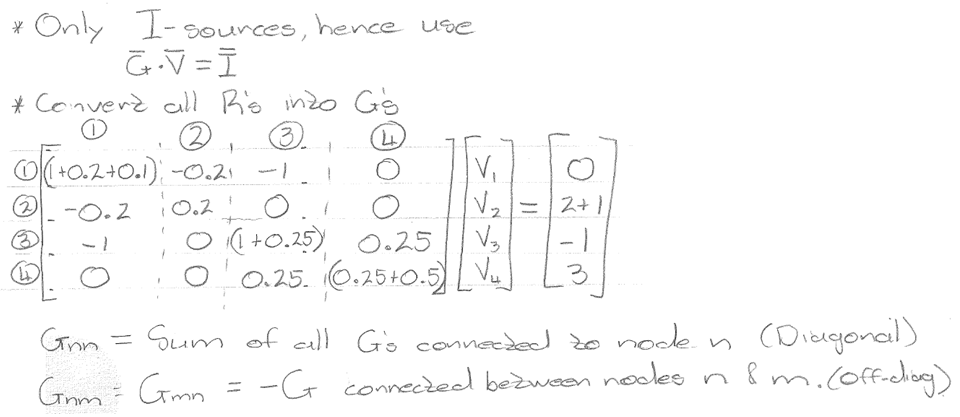 * Only I-sources, hence use
Ḡ·V̄ = Ī
* Convert all R's into G's
① ② ③ ④
① (1+0.2+0.1) -0.2 -1 0 V₁ 0
② -0.2 0.2 0 0 V₂ = 2+1
③ -1 0 (1+0.25) 0.25 V₃ -1
④ 0 0 0.25 (0.25+0.5) V₄ 3
Gnn = Sum of all G's connected to node n (Diagonal)
Gnm = Gmn = -G connected between nodes n & m. (off-diag)